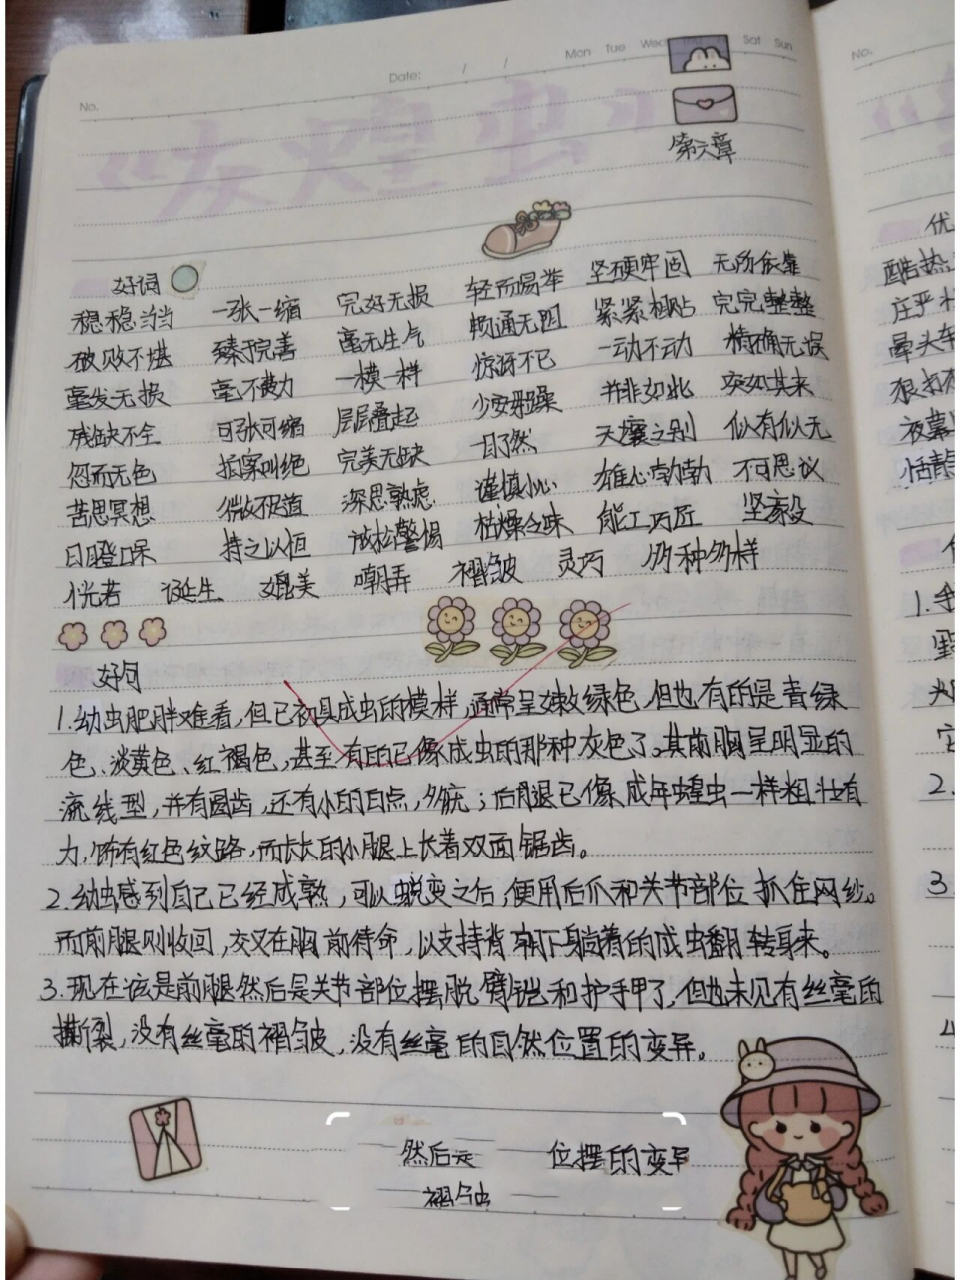 No.
Date: / /
Mon Tue Wed Sat Sun
第六章
好词
稳稳当当 一张一缩 完好无损 轻而易举 坚硬牢固 无所依靠
破败不堪 臻于完善 毫无生气 顺通无阻 紧紧相贴 完完整整
毫发无损 毫不费力 一模一样 惊讶不已 一动不动 精确无误
残缺不全 可张可缩 层层叠起 少安毋躁 并非如此 突如其来
忽而无色 拍案叫绝 完美无缺 一目了然 天壤之别 似有似无
苦思冥想 微不足道 深思熟虑 谨慎小心 雄心勃勃 不可思议
目瞪口呆 持之以恒 放松警惕 枯燥乏味 能工巧匠
恍若 诞生 媲美 嘲弄 褶皱 灵巧 多种多样
好句
1.幼虫肥胖难看,但已初具成虫的模样,通常呈嫩绿色,但也有的是青绿
色、淡黄色、红褐色,甚至有的已像成虫的那种灰色了。其前胸呈明显的
流线型,并有圆齿,还有小的白点,多疣;后腿已像成年蝗虫一样粗壮有
力,饰有红色纹路,而长长的小腿上长着双面锯齿。
2.幼虫感到自己已经成熟,可以蜕变之后,便用后爪和关节部位抓住网纱。
而前腿则收回,交叉在胸前待命,以支持背朝下躺着的成虫翻转身来。
3.现在该是前腿然后是关节部位摆脱臂铠和护手甲了,但也未见有丝毫的
撕裂,没有丝毫的褶皱,没有丝毫的自然位置的变异。
然后是 位摆的变异
褶皱
No.
优
酷热
庄严
晕头车
夜幕
恬静
1.
2.
3.